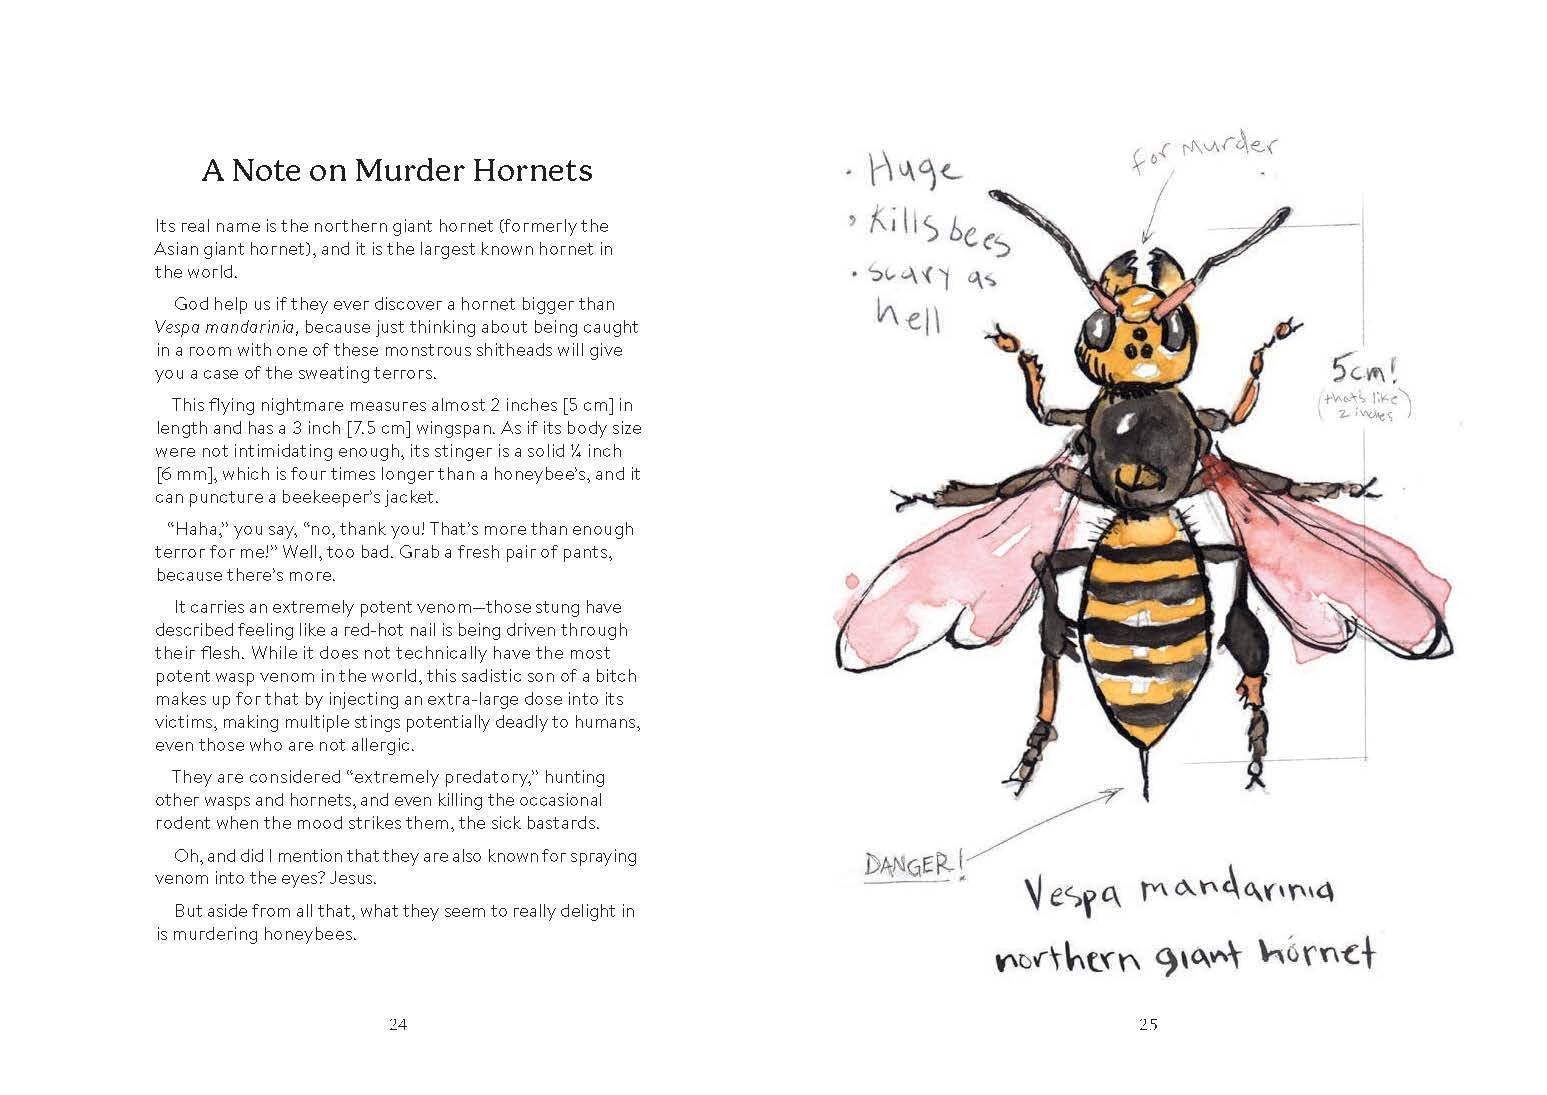 A Note on Murder Hornets
Its real name is the northern giant hornet (formerly the
Asian giant hornet), and it is the largest known hornet in
the world.
God help us if they ever discover a hornet bigger than
Vespa mandarinia, because just thinking about being caught
in a room with one of these monstrous shitheads will give
you a case of the sweating terrors.
This flying nightmare measures almost 2 inches [5 cm] in
length and has a 3 inch [7.5 cm] wingspan. As if its body size
were not intimidating enough, its stinger is a solid ¼ inch
[6 mm], which is four times longer than a honeybee’s, and it
can puncture a beekeeper’s jacket.
“Haha,” you say, “no, thank you! That’s more than enough
terror for me!” Well, too bad. Grab a fresh pair of pants,
because there’s more.
It carries an extremely potent venom—those stung have
described feeling like a red-hot nail is being driven through
their flesh. While it does not technically have the most
potent wasp venom in the world, this sadistic son of a bitch
makes up for that by injecting an extra-large dose into its
victims, making multiple stings potentially deadly to humans,
even those who are not allergic.
They are considered “extremely predatory,” hunting
other wasps and hornets, and even killing the occasional
rodent when the mood strikes them, the sick bastards.
Oh, and did I mention that they are also known for spraying
venom into the eyes? Jesus.
But aside from all that, what they seem to really delight in
is murdering honeybees.
24
• Huge
• Kills bees
• scary as
hell
for murder
5cm!
(that's like
2 inches)
DANGER!
Vespa mandarinia
northern giant hornet
25